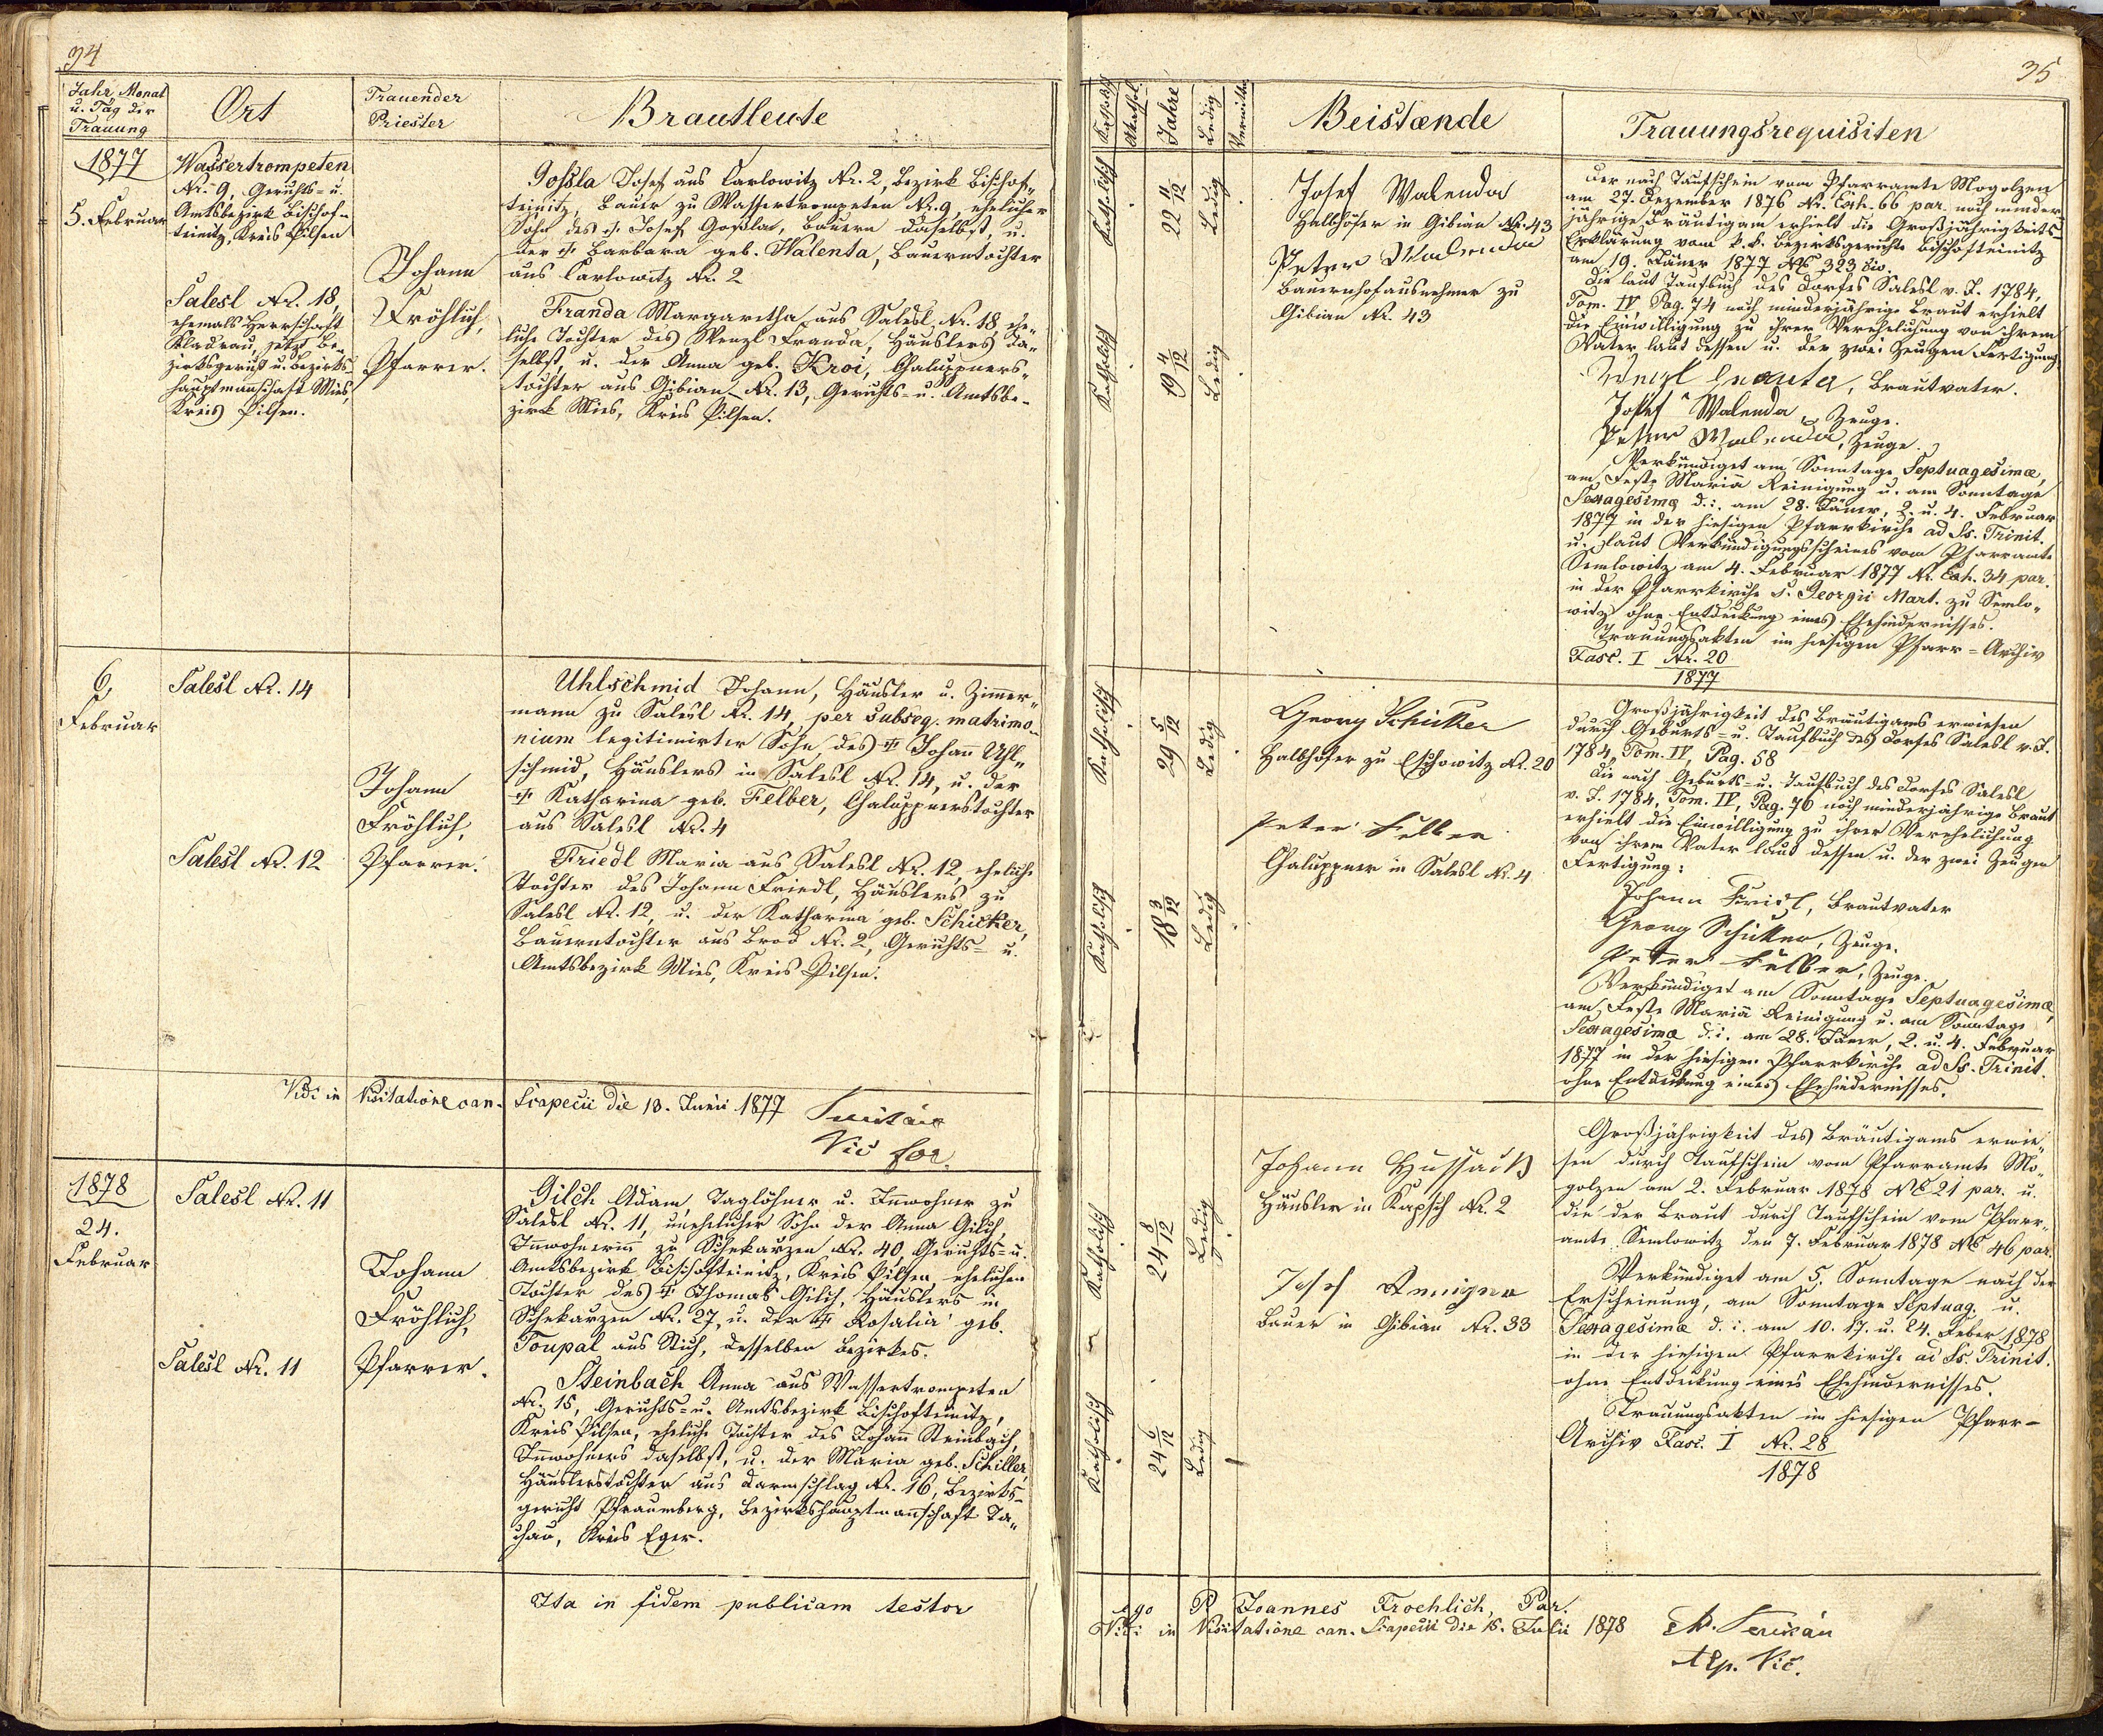 94
Jahr, Monat
u. Tag der
Trauung
Ort
Trauender
Priester
Brautleute
1877
5. Februar
Wassertrompeten
Nr. 9, Gerichts- u.
Amtsbezirk Bischof-
teinitz, Kreis Pilsen
Salesl Nr. 18,
ehemals Herrschaft
Kladrau, jetzt Be-
zirksgericht u. Bezirks-
hauptmanschaft Mies,
Kreis Pilsen.
Johann
Fröhlich,
Pfarrer.
Josef aus Carlowitz Nr. 2, Bezirk Bischof„
teinitz, Bauer zu Wassertrompeten Nr. 9, ehelicher
Sohn des † Josef Goßla, Bauern daselbst, u.
der † Barbara geb. Walenta, Bauerntochter
aus Carlowitz Nr. 2
Franda Margaretha aus Salesl Nr. 18 ehe„
liche Tochter des Wenzl Franda, Häuslers da„
selbst, u. der Anna geb. Kroi, Chaluppners„
tochter aus Gibian Nr. 13, Gerichts- u. Amtsbe-
zirk Mies, Kreis Pilsen.
6.
Februar
Salesl Nr. 14
Salesl Nr. 12
Johann
Fröhlich,
Pfarrer.
Uhlschmid Johann, Häusler u. Zimer„
mann zu Salesl Nr. 14, per subseq. matrimo„
nium legitimirter Sohn des † Johann Uhl„
schmid, Häuslers in Salesl Nr. 14, u. der
† Katharina geb. Felber, Chaluppnerstochter
aus Salesl Nr. 4
Friedl Maria aus Salesl Nr. 12, eheliche
Tochter des Johann Friedl, Häuslers zu
Salesl Nr. 12, u. der Katharina geb. Schicker,
Bauerntochter aus Brod Nr. 2, Gerichts- u.
Amtsbezirk Mies, Kreis Pilsen.
Vidi in Visitatione can. Scapecii die 13. Junii 1877
Vic for.
1878
24.
Februar
Salesl Nr. 11
Salesl Nr. 11
Johann
Fröhlich,
Pfarrer.
Gilch Adam, Taglöhner u. Inwohner zu
Salesl Nr. 11, unehelicher Sohn der Anna Gilch,
Inwohnerin zu Schekarzen Nr. 40, Gerichts- u.
Amtsbezirk Bischofteinitz, Kreis Pilsen, ehelichen
Tochter des † Thomas Gilch, Häuslers in
Schekarzen Nr. 27, u. der † Rosalia geb.
Toupal aus Stich, desselben Bezirkes.
Steinbach Anna aus Wassertrompeten
Nr. 15, Gerichts- u. Amtsbezirk Bischofteinitz,
Kreis Pilsen, eheliche Tochter des Johann Steinbach,
Inwohners daselbst, u. der Maria geb. Schiller,
Häuslerstochter aus Darmschlag Nr. 16, Bezirks-
gericht Pfraumberg, Bezirkshauptmannschaft Ta„
chau, Kreis Eger.
Ita in fidem publicam testor
35
Katholisch
Akathol.
Jahre
Ledig
Verwittw.
Beistænde
Trauungsrequisiten
Katholisch
22 4/12
Ledig
Katholisch
19 4/12
Ledig
Josef Walenda
Halbhöfer in Gibian Nr. 43
Peter Walenda
Bauernhofausnehmer zu
Gibian Nr. 43
Der nach Taufschein vom Pfarramte Mogolzen
am 27. Dezember 1876 Nr. Exh. 66 par. noch minder„
jährige Bräutigam erhielt die Großjährigkeits-
Erklärung vom k. k. Bezirksgerichte Bischofteinitz
am 19. Jäner 1877 No 323 civ.
Die laut Taufbuch des Dorfes Salesl v. J. 1784,
Tom. IV, Pag. 74 noch minderjährige Braut erhielt
die Einwilligung zu ihrer Verehelichung von ihrem
Vater laut dessen u. der zwei Zeugen Fertigung
Wenzl Franda, Brautvater.
Josef Walenda, Zeuge.
Peter Walenda, Zeuge.
Verkündiget am Sonntage Septuagesimæ,
am Feste Mariä Reinigung u. am Sonntage
Sexagesimæ d. i. am 28. Jäner, 2. u. 4. Februar
1877 in der hiesigen Pfarrkirche ad Ss. Trinit.
u. laut Verkündigungsscheines vom Pfarramte
Semlowitz am 4. Februar 1877 Nr. Exh. 34 par.
in der Pfarrkirche s. Georgii Mart. zu Semlo„
witz ohne Entdeckung eines Ehehindernisses.
Trauungsakten im hiesigen Pfarr-Archiv
Fasc. I Nr. 20
1877
Katholisch
29 5/12
Ledig
Katholisch
18 3/12
Ledig
Georg Schicker
Halbhöfer zu Elschowitz Nr. 20
Peter Felber
Chaluppner in Salesl Nr. 4
Großjährigkeit des Bräutigams erwiesen
durch Geburts- u. Taufbuch des Dorfes Salesl v. J.
1784, Tom. IV, Pag. 58
Die nach Geburts- u. Taufbuch des Dorfes Salesl
v. J. 1784, Tom. IV, Pag. 76 noch minderjährige Braut
erhielt die Einwilligung zu ihrer Verehelichung
von ihrem Vater laut dessen u. der zwei Zeugen
Fertigung:
Johann Fridl, Brautvater
Georg Schicker, Zeuge.
Peter Felber, Zeuge.
Verkündiget am Sonntage Septuagesimæ,
am Feste Mariä Reinigung u. am Sonntage
Sexagesimæ d. i. am 28. Jäner, 2. u. 4. Februar
1877 in der hiesigen Pfarrkirche ad Ss. Trinit.
ohne Entdeckung eines Ehehindernisses.
Katholisch
24 8/12
Ledig
Katholisch
24 6/12
Ledig
Johann Hussack
Häusler in Kapsch Nr. 2
Josef
Bauer in Gibian Nr. 33
Großjährigkeit des Bräutigams erwie„
sen durch Taufschein vom Pfarramte Mo„
golzen am 2. Februar 1878 No 21 par. u.
die der Braut durch Taufschein vom Pfarr„
amte Semlowitz den 7. Februar 1878 No 46 par.
Verkündiget am 5. Sonntage nach der
Erscheinung, am Sonntage Septuag. u.
Sexagesimæ d. i. am 10. 17. u. 24. Feber 1878
in der hiesigen Pfarrkirche ad Ss. Trinit.
ohne Entdeckung eines Ehehindernisses.
Trauungsakten im hiesigen Pfarr-
Archiv Fasc. I Nr. 28
1878
ego P Joannes Froehlich, Par.
Vidi in Visitatione can. Scapecii die 15. Julii 1878
Vic.